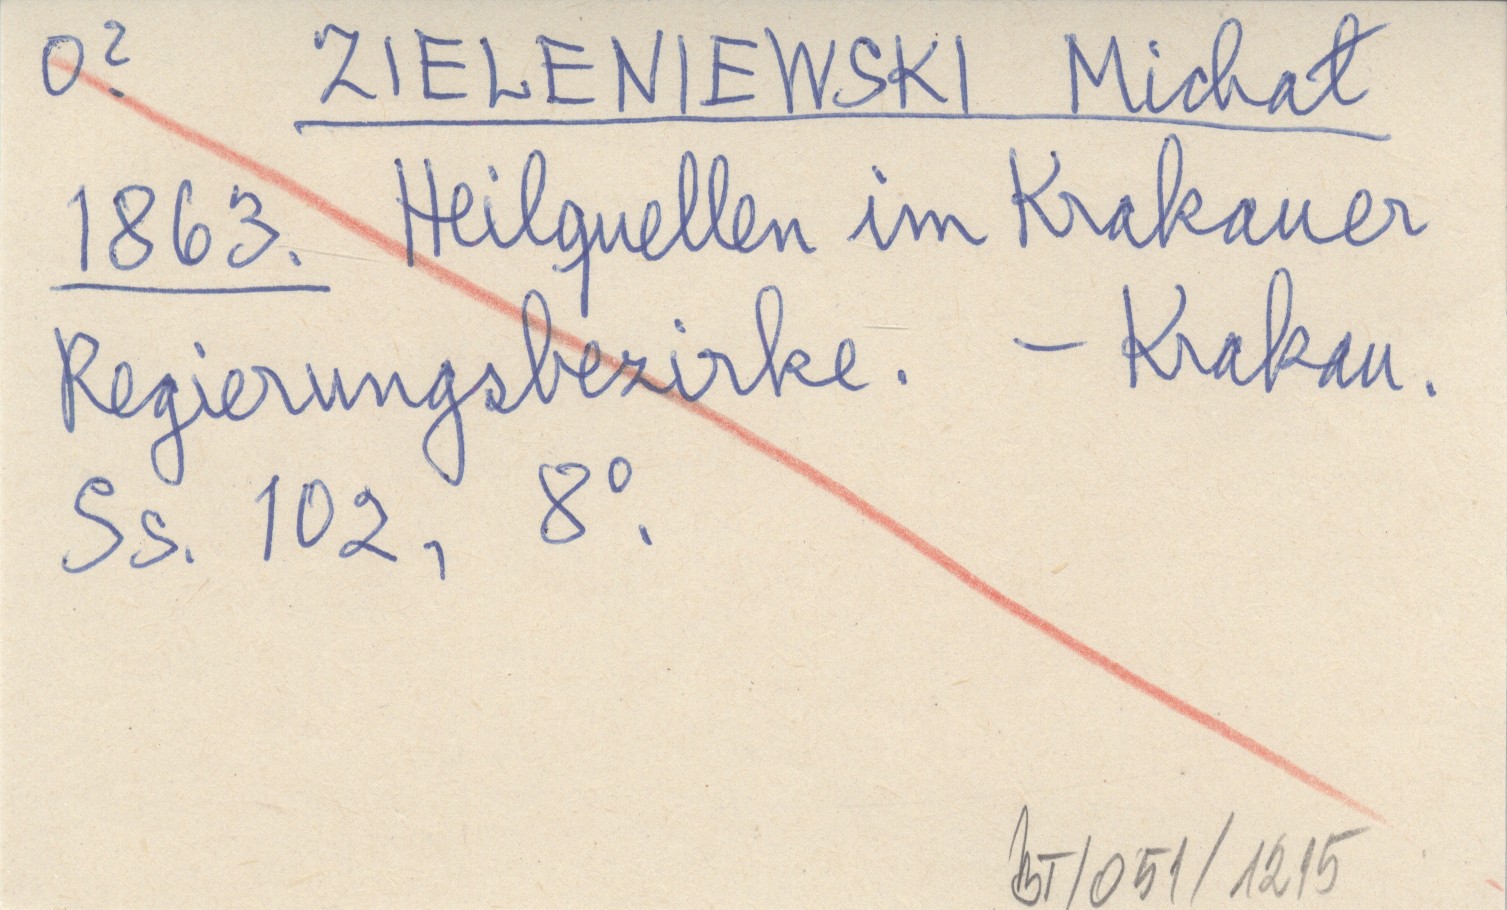 O? ZIELENIEWSKI Michał
1863. Heilquellen im Krakauer
Regierungsbezirke. – Krakau.
Ss. 102, 8°.
BT/051/1215